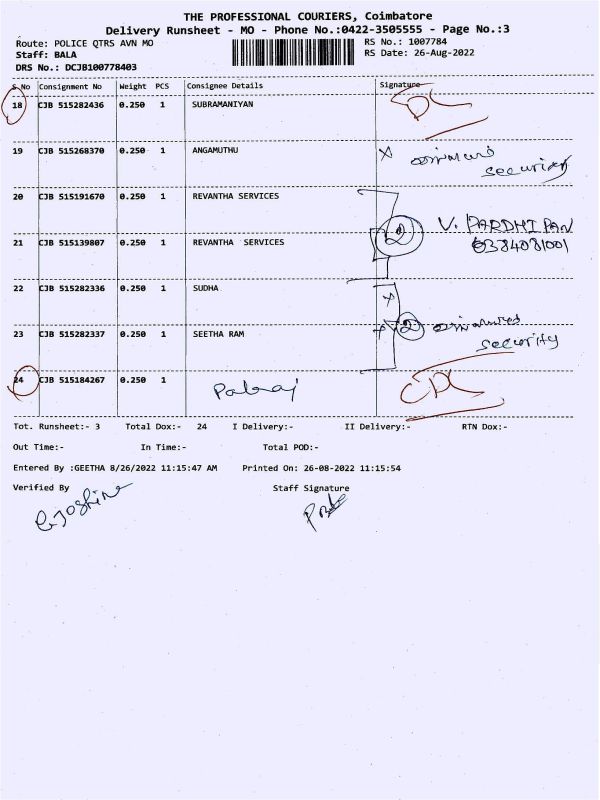 THE PROFESSIONAL COURIERS, Coimbatore
Delivery Runsheet - MO - Phone No.:0422-3505555 - Page No.:3
Route: POLICE QTRS AVN MO RS No.: 1007784
Staff: BALA RS Date: 26-Aug-2022
DRS No.: DCJB100778403
S.No Consignment No Weight PCS Consignee Details Signature
18 CJB 515282436 0.250 1 SUBRAMANIYAN
19 CJB 515268370 0.250 1 ANGAMUTHU
security
20 CJB 515191670 0.250 1 REVANTHA SERVICES
2 V. PARDHIPAN
21 CJB 515139807 0.250 1 REVANTHA SERVICES
22 CJB 515282336 0.250 1 SUDHA
2
23 CJB 515282337 0.250 1 SEETHA RAM
security
24 CJB 515184267 0.250 1
Tot. Runsheet:- 3 Total Dox:- 24 I Delivery:- II Delivery:- RTN Dox:-
Out Time:- In Time:- Total POD:-
Entered By :GEETHA 8/26/2022 11:15:47 AM Printed On: 26-08-2022 11:15:54
Verified By Staff Signature